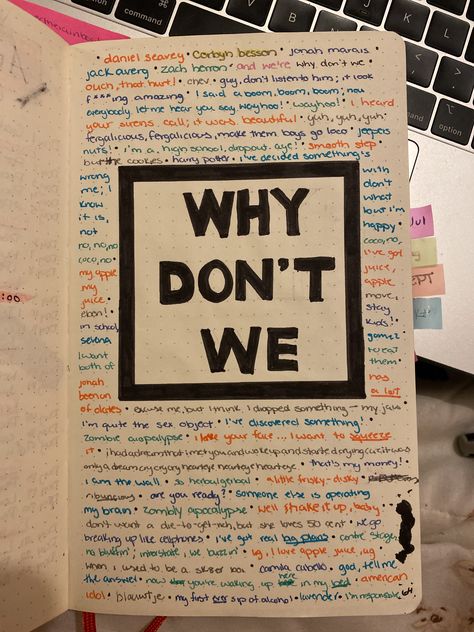 • daniel seavey • Corbyn besson • jonah marais •
jack avery • zach herron • and we're why don't we •
ouch, that hurt! • chev • guy, don't listen to him; it look
f***ing amazing • I said a boom, boom, boom; now
everybody let me hear you say wayhoo! • wayhoo! • I heard
your sirens call; it was beautiful • yuh, yuh, yuh •
fergalicious, fergalicious, make them boys go loco • jeepers
nuts! • i'm a, high school, dropout, aye! • smooth step •
but the cookies • harry potter • i've decided something's
wrong with
me; I don't
know what
it is, but i'm
not happy •
no, no, no coco, no •
coco, no • i've got
my apple juice,
my apple
juice • move,
ebon! • stay
in school, kids! •
selena gomez •
I want to eat
both of them •
jonah has
beenon a lot
of dates • excuse me, but I think I dropped something — my jaw •
i'm quite the sex object • i've discovered something! •
Zombie aupocalypse • I love your face... I want to squeeze
it • i had a dream that i met you and we woke up and started crying cuz it was
only a dream cry cry cry hearteye hearteye hearteye • that's my money! •
I am the wall • so herbalgerbal • a little frisky-dusky •
ribuncious • are you ready? • someone else is operating
my brain • zombly apocalypse • we'll shake it up, baby •
don't want a die-to-get-rich, but she loves 50 cent • we go
breaking up like cellphones • i've got real big plans • centre stage,
no bluffin'; interstate, we buzzin' • ug, I love apple juice, ug
when I used to be a sk8er boi • camila cabello • god, tell me
the answer! • now you're waking up here in my bed • american
idol • blauwtje • my first ever sip of alcohol • lavender • i'm responsible
WHY
DON'T
WE
command
option
:00
Jul
EPT